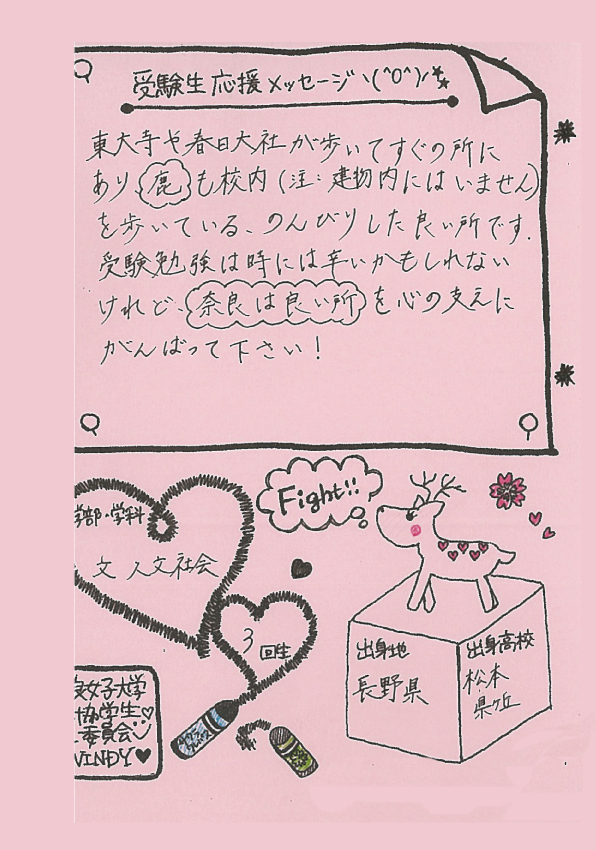 受験生応援メッセージヽ(^0^)ﾉ
東大寺や春日大社が歩いてすぐの所に
あり、鹿も校内(注:建物内にはいません)
を歩いている、のんびりした良い所です.
受験勉強は時には辛いかもしれない
けれど、奈良は良い所を心の支えに
がんばって下さい!
Fight!!
学部・学科
文 人文社会
3回生
出身地
長野県
出身高校
松本
県ヶ丘
良女子大学
協学生
委員会
WINDY